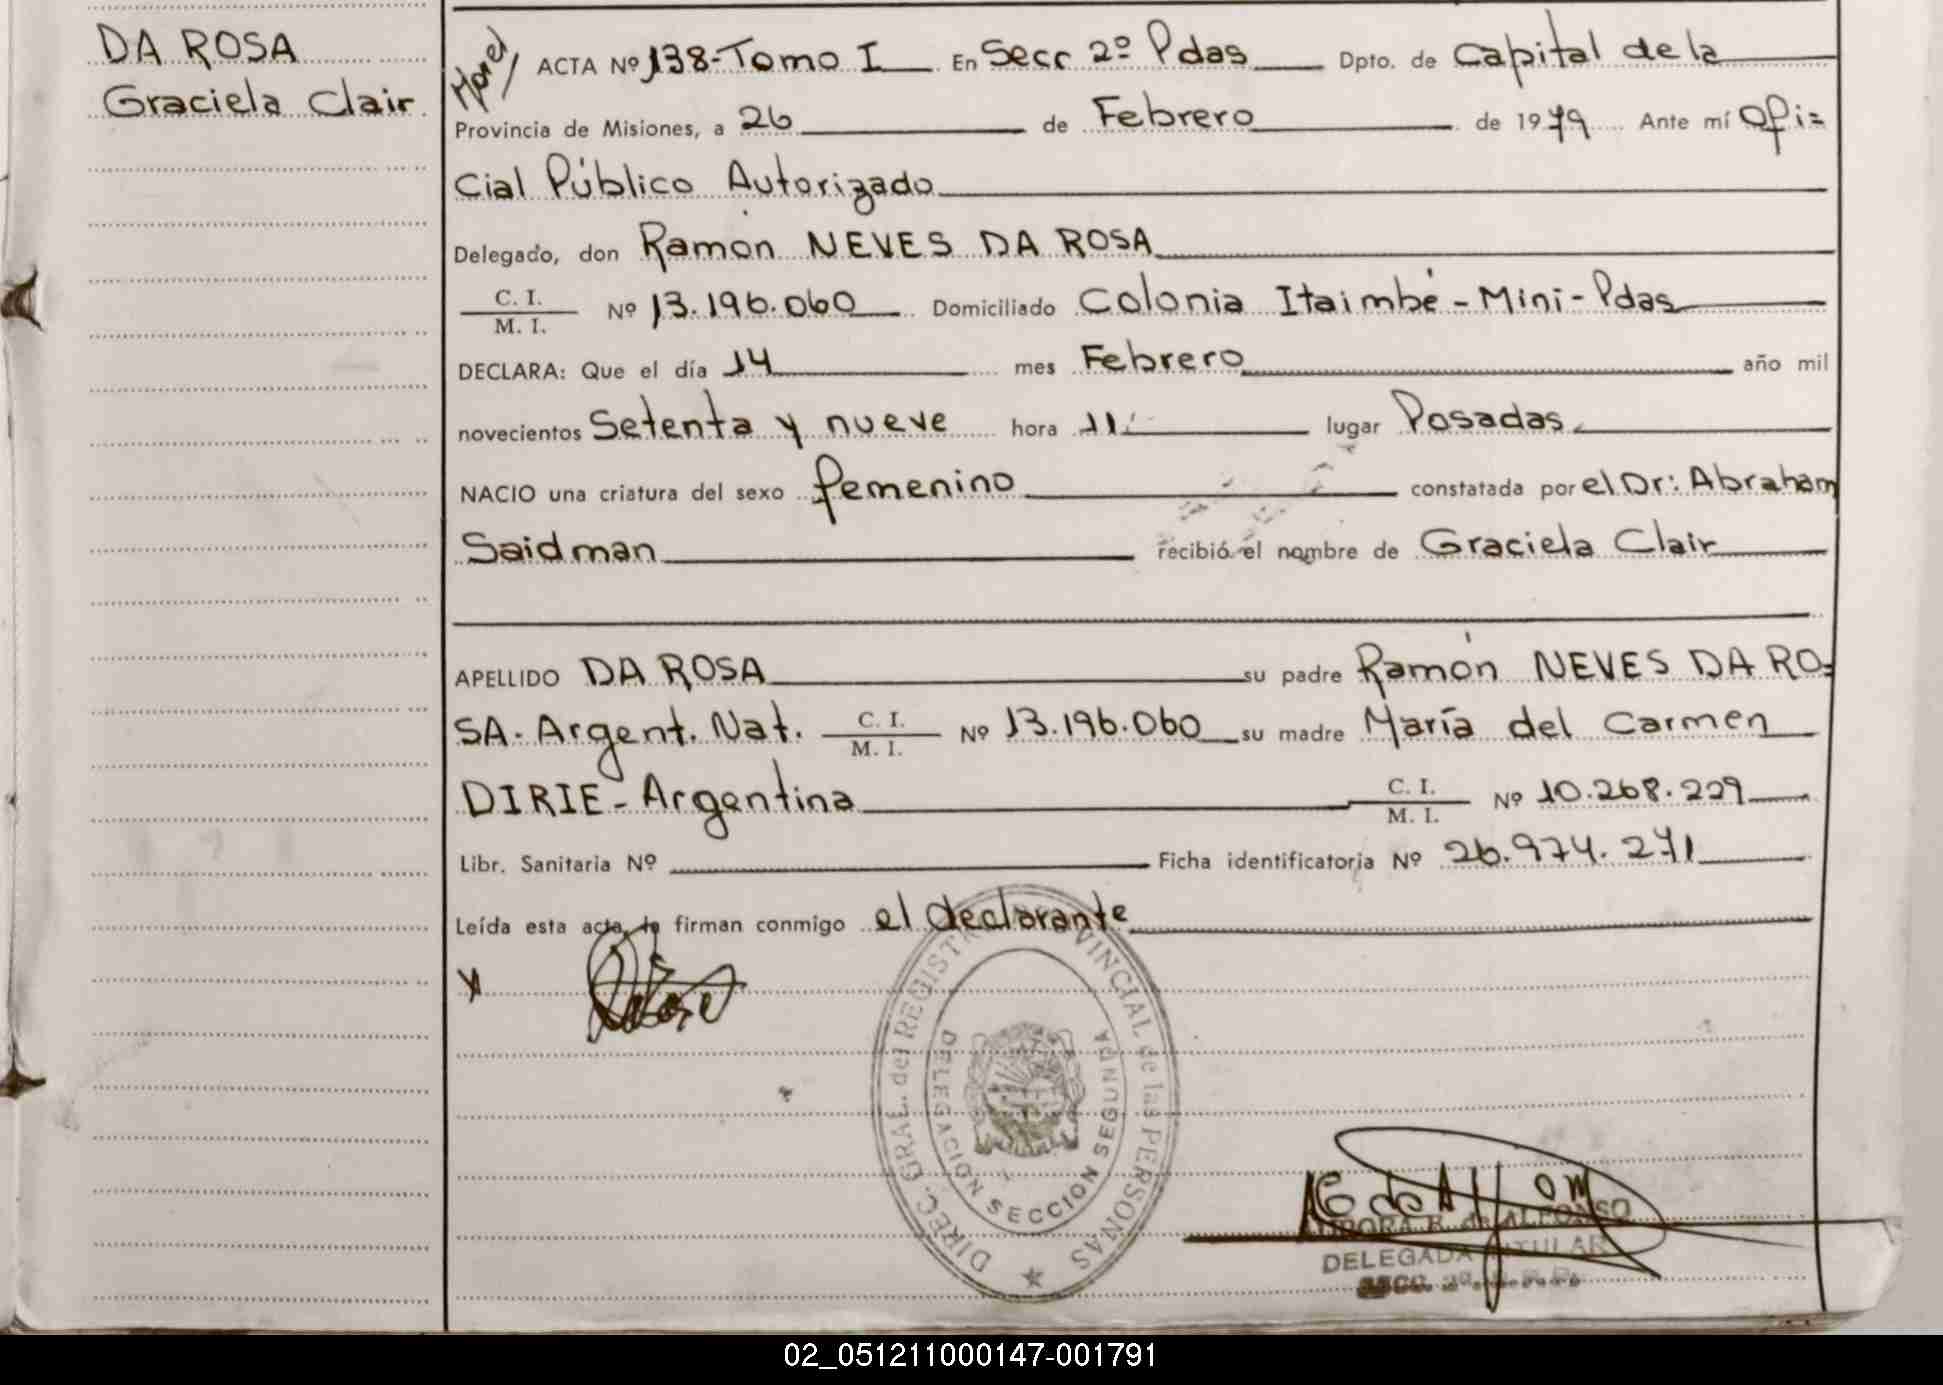 DA ROSA
Graciela Clair
ACTA Nº 138-Tomo I En Secc 2º Pdas Dpto. de Capital de la
Provincia de Misiones, a 26 de Febrero de 1979 Ante mí Ofi=
cial Público Autorizado
Delegado, don Ramón NEVES DA ROSA
C. I.
M. I. Nº 13.196.060 Domiciliado Colonia Itaimbé-Mini-Pdas
DECLARA: Que el día 14 mes Febrero año mil
novecientos Setenta y nueve hora 11 lugar Posadas
NACIO una criatura del sexo femenino constatada por el Dr: Abraham
Saidman recibió el nombre de Graciela Clair
APELLIDO DA ROSA su padre Ramón NEVES DA RO=
SA. Argent. Nat. C. I. M. I. Nº 13.196.060 su madre María del Carmen
DIRIE-Argentina C. I. M. I. Nº 10.268.229
Libr. Sanitaria Nº Ficha identificatoria Nº 26.974.271
Leída esta acta, la firman conmigo el declarante
DIREC. GRAL. del REGISTRO PROVINCIAL de las PERSONAS
DELEGACION SECCION SEGUNDA
AURORA R. de ALFONSO
DELEGADA TITULAR
SECC. 2ª
02_051211000147-001791